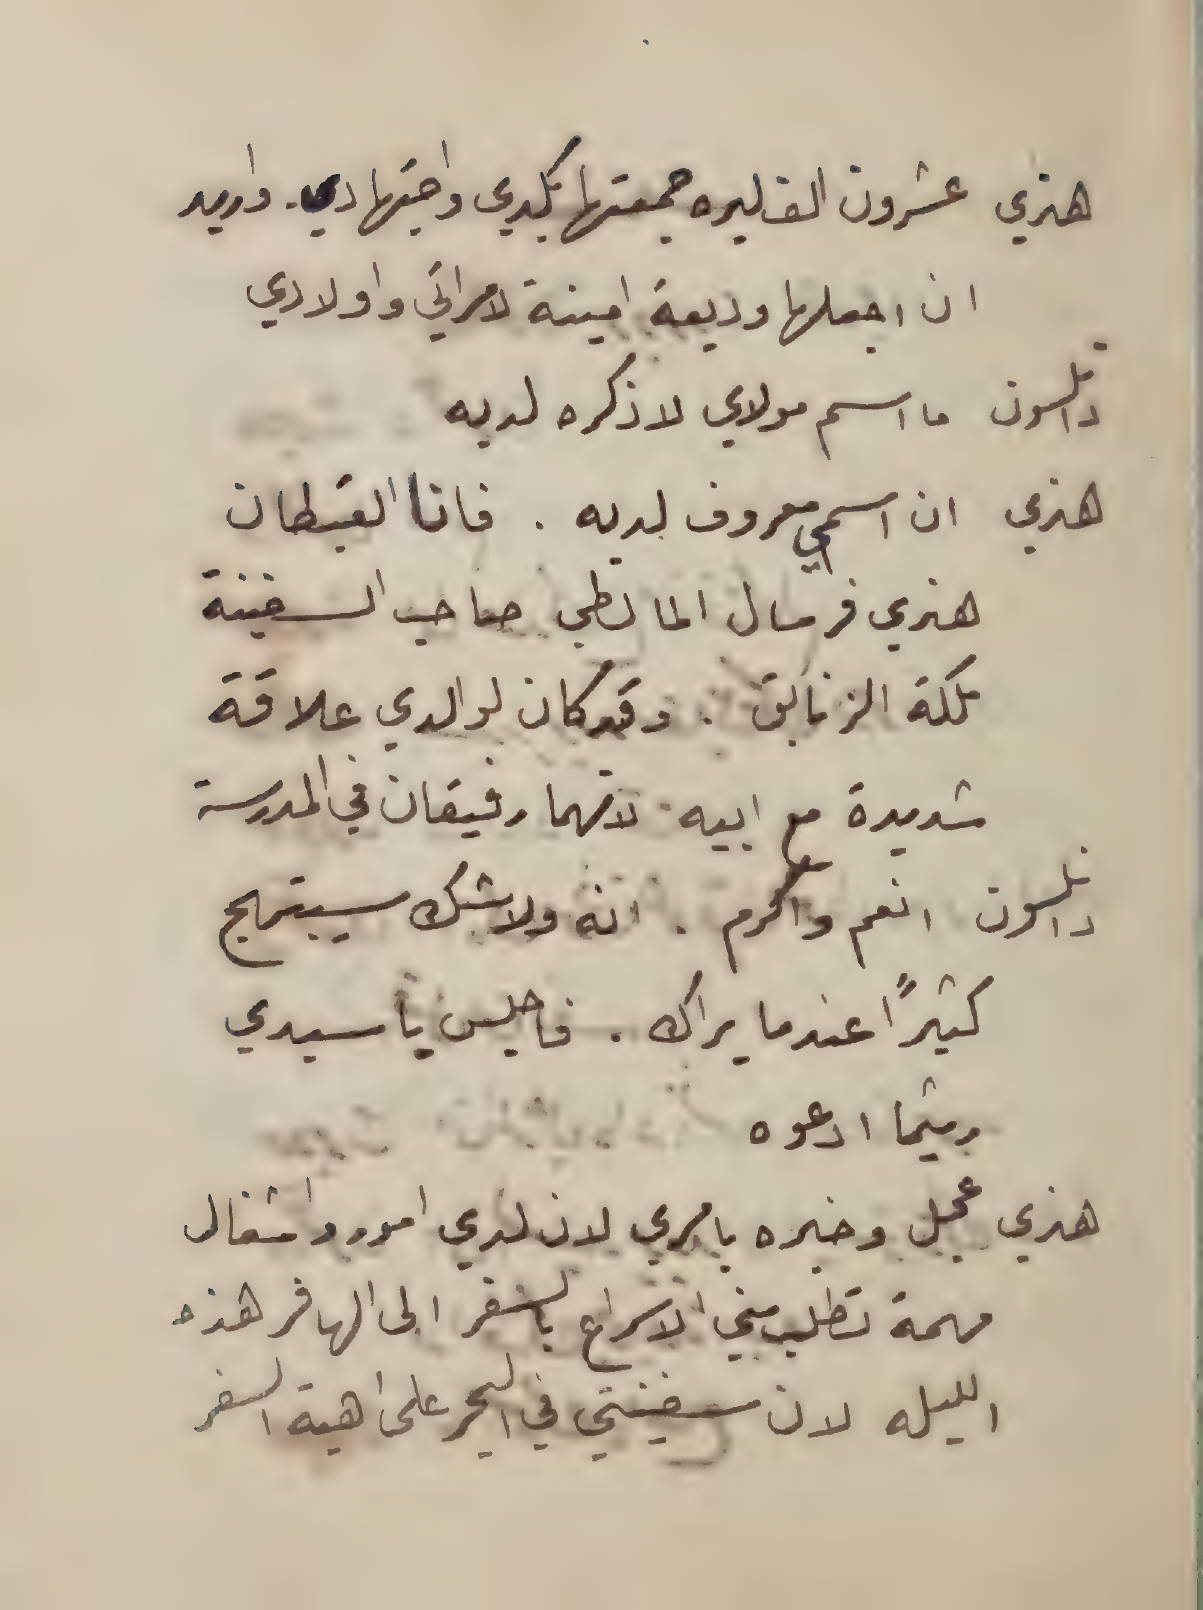 هنري عشرون الف ليره جمعتها بكدي واجتهادي. واريد
ان اجعلها وديعة امينة لامرأتي واولادي
دانلسون ما اسم مولاي لاذكره لديه
هنري ان اسمي معروف لديه . فانا القبطان
هنري فرسال المالطي صاحب السفينة
ملكة الزنابق . وقد كان لوالدي علاقة
شديدة مع ابيه لانهما رفيقان في المدرسة
دانلسون انعم واكرم . انه ولاشك سيبتهج
كثيرًا عندما يراك . فاجلس يا سيدي
ريثما ادعوه
هنري عجل وخبره بامري لان لدي امور واشغال
مهمة تطلب مني الاسراع بالسفر الى الهافر هذه
الليله لان سفينتي في البحر على اهبة السفر